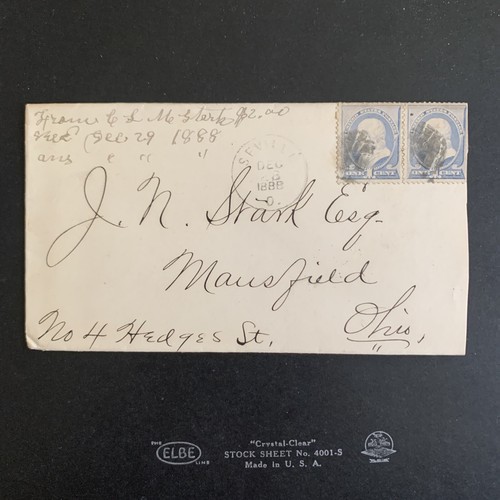 From C L M Stark $2.00
Rec Dec 29 1888
ans " " "
SEVILLE
DEC
28
1888
O.
UNITED STATES POSTAGE
ONE CENT
ONE CENT
J. N. Stark Esq.
Mansfield
No 4 Hedges St. Ohio,
THE ELBE LINE
"Crystal-Clear"
STOCK SHEET No. 4001-S
Made in U. S. A.